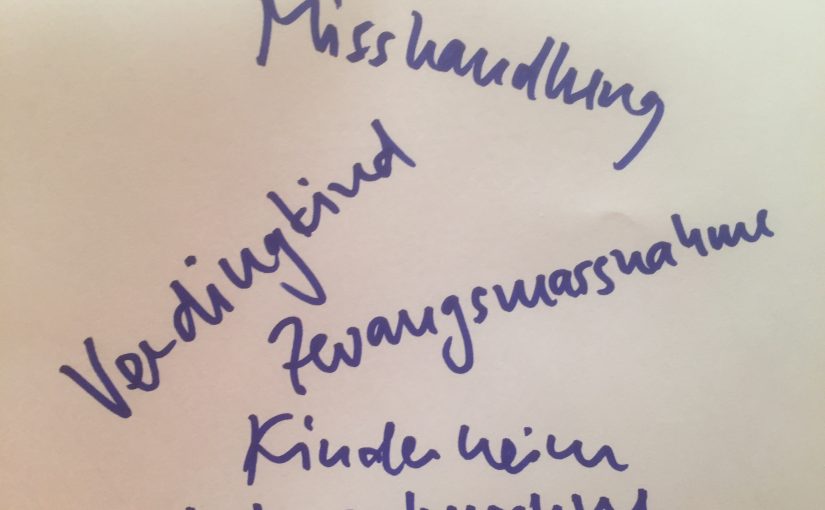 Misshandlung
Verdingkind
Zwangsmassnahme
Kinderheim